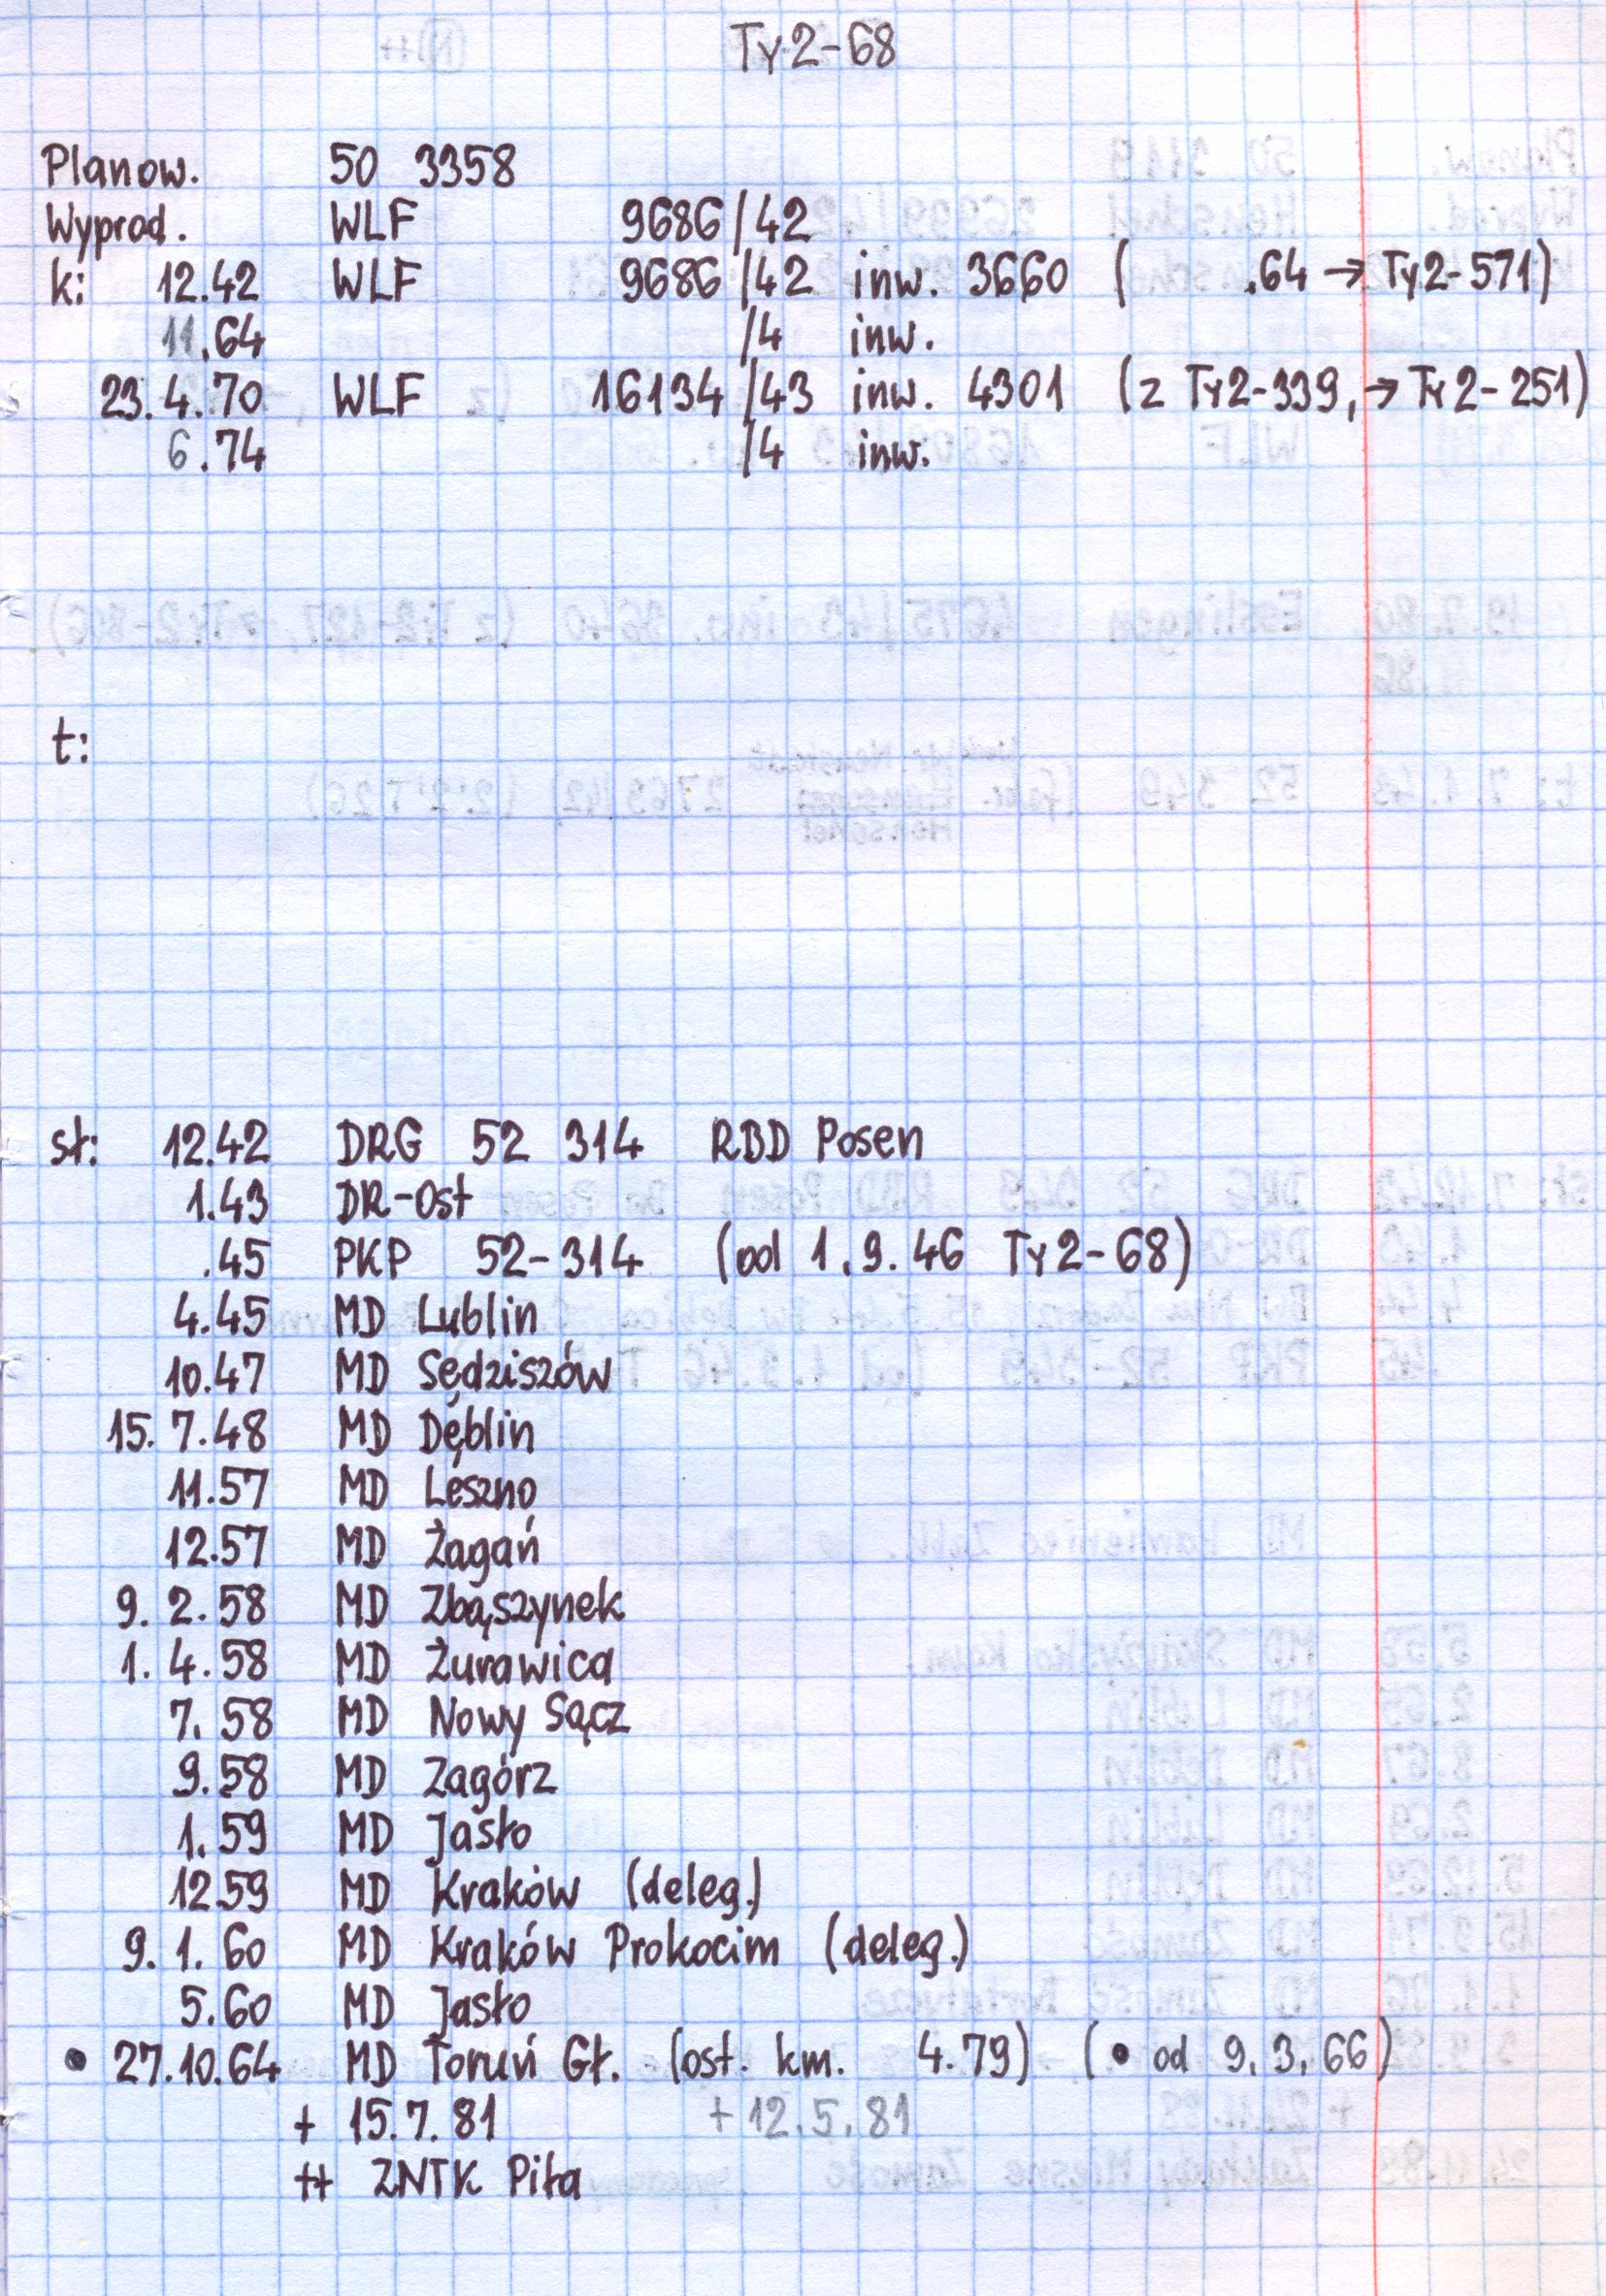 Ty2-68
Planow. 50 3358
Wyprod. WLF 9686/42
k: 12.42 WLF 9686/42 inw. 3660 ( .64 → Ty2-571)
11.64 /4 inw.
23.4.70 WLF 16134/43 inw. 4301 (z Ty2-339, → Ty2-251)
6.74 /4 inw.
t:
st: 12.42 DRG 52 314 RBD Posen
1.43 DR-Ost
.45 PKP 52-314 (od 1.9.46 Ty2-68)
4.45 MD Lublin
10.47 MD Sędziszów
15.7.48 MD Dęblin
11.57 MD Leszno
12.57 MD Żagań
9.2.58 MD Zbąszynek
1.4.58 MD Żurawica
7.58 MD Nowy Sącz
9.58 MD Zagórz
1.59 MD Jasło
12.59 MD Kraków (deleg.)
9.1.60 MD Kraków Prokocim (deleg.)
5.60 MD Jasło
• 27.10.64 MD Toruń Gł. (ost. km. 4.79) (• od 9.3.66)
+ 15.7.81 + 12.5.81
++ ZNTK Piła